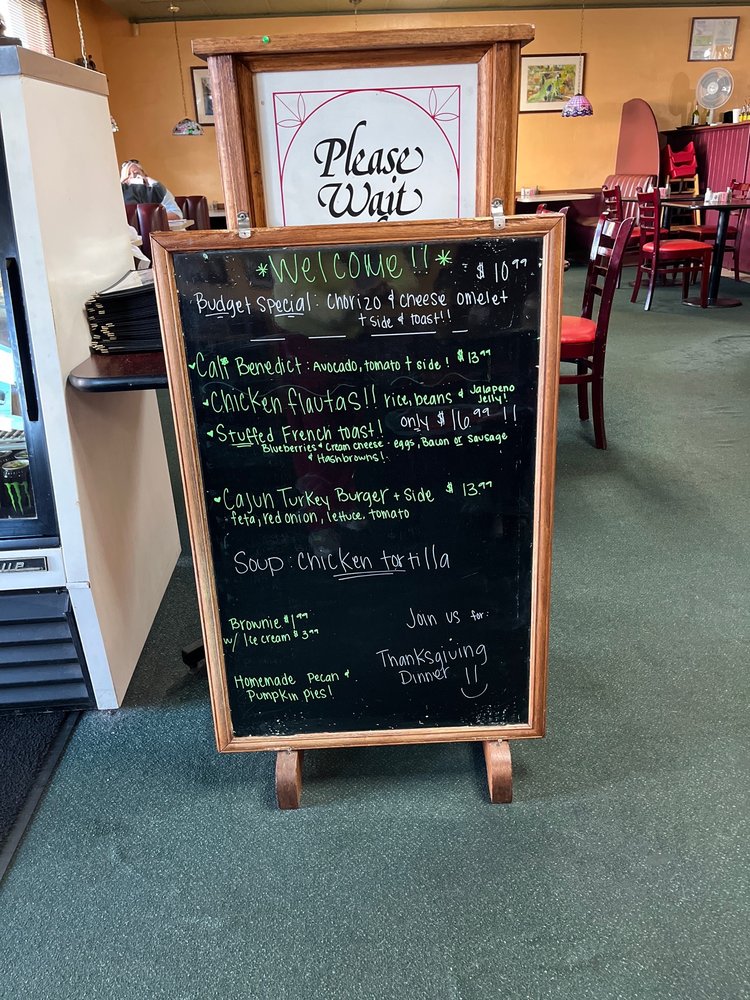 Please
Wait
*Welcome!!*
$10.99
Budget Special: Chorizo & cheese omelet
+ side & toast!!
Cali Benedict: Avocado, tomato + side! $13.99
Chicken flautas!! rice, beans & Jalapeno Jelly!
only $16.99!!
Stuffed French toast!
Blueberries & Cream cheese - eggs, Bacon or Sausage
& Hashbrowns!
Cajun Turkey Burger + Side $13.99
feta, red onion, lettuce, tomato
Soup: chicken tortilla
Brownie $1.99
w/ Ice cream $3.99
Join us for:
Thanksgiving
Dinner !!
Homemade Pecan &
Pumpkin pies!